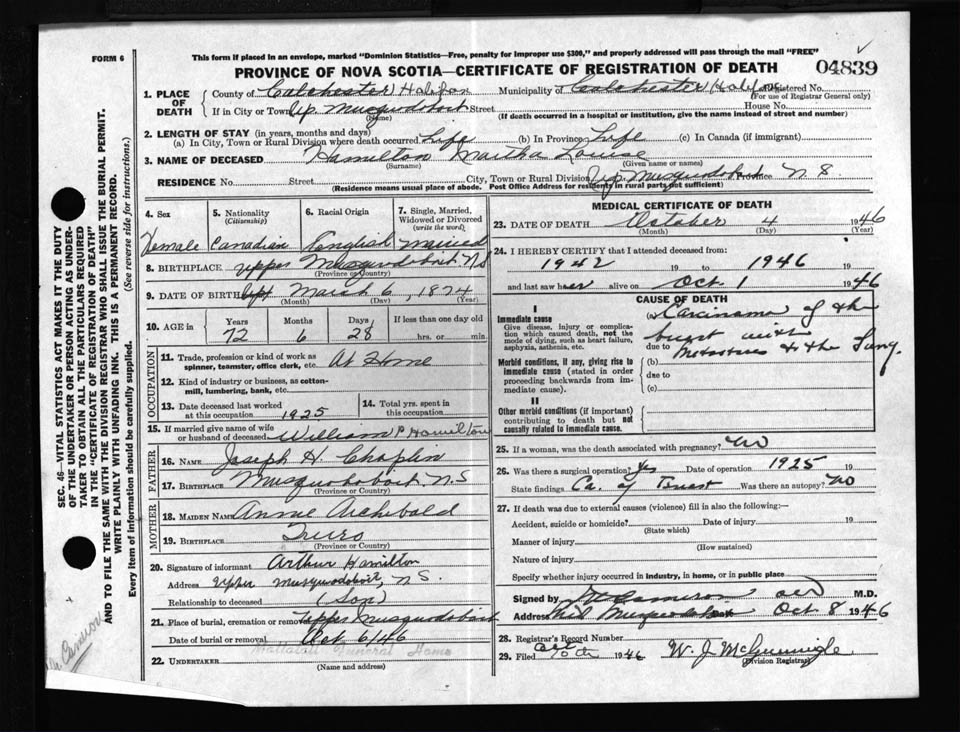 FORM 6
This form if placed in an envelope, marked "Dominion Statistics—Free, penalty for improper use $300," and properly addressed will pass through the mail "FREE"
PROVINCE OF NOVA SCOTIA—CERTIFICATE OF REGISTRATION OF DEATH 04839
1. PLACE OF DEATH
County of Colchester Halifax Municipality of Colchester Halifax Registered No.
(For use of Registrar General only)
If in City or Town Up. Musquodoboit Street House No.
(Name) (If death occurred in a hospital or institution, give the name instead of street and number)
2. LENGTH OF STAY (in years, months and days)
(a) In City, Town or Rural Division where death occurred Life (b) In Province Life (c) In Canada (if immigrant)
3. NAME OF DECEASED Hamilton Martha Louise
(Surname) (Given name or names)
RESIDENCE No. Street City, Town or Rural Division Up. Musquodoboit Province N S.
(Residence means usual place of abode. Post Office Address for residents in rural parts not sufficient)
4. Sex 5. Nationality (Citizenship) 6. Racial Origin 7. Single, Married, Widowed or Divorced (write the word)
Female Canadian English married
8. BIRTHPLACE Upper Musquodoboit. NS
(Province or Country)
9. DATE OF BIRTH March 6, 1874
(Month) (Day) (Year)
10. AGE in Years Months Days If less than one day old
72 6 28 hrs. or min.
OCCUPATION
11. Trade, profession or kind of work as spinner, teamster, office clerk, etc. At Home
12. Kind of industry or business, as cotton-mill, lumbering, bank, etc.
13. Date deceased last worked at this occupation 1925 14. Total yrs. spent in this occupation
15. If married give name of wife or husband of deceased William P Hamilton
FATHER
16. Name Joseph H. Chaplin
17. Birthplace Musquodoboit. N.S
(Province or Country)
MOTHER
18. Maiden Name Annie Archibald
19. Birthplace Truro
(Province or Country)
20. Signature of informant Arthur Hamilton
Address Upper Musquodoboit, N S.
Relationship to deceased (Son)
21. Place of burial, cremation or removal Upper Musquodoboit
Date of burial or removal Oct 6/46
22. UNDERTAKER Funeral Home
(Name and address)
MEDICAL CERTIFICATE OF DEATH
23. DATE OF DEATH October 4 1946
(Month) (Day) (Year)
24. I HEREBY CERTIFY that I attended deceased from:
1942 19 to 1946 19
and last saw her alive on Oct. 1 1946
CAUSE OF DEATH
I
Immediate cause
Give disease, injury or complication which caused death, not the mode of dying, such as heart failure, asphyxia, asthenia, etc.
(a) Carcinoma of the
breast with
due to Metastases to the Lung.
Morbid conditions, if any, giving rise to immediate cause (stated in order proceeding backwards from immediate cause).
(b)
due to
(c)
II
Other morbid conditions (if important) contributing to death but not causally related to immediate cause.
25. If a woman, was the death associated with pregnancy? No
26. Was there a surgical operation? Yes Date of operation 1925 19
State findings Ca. of Breast Was there an autopsy? No
27. If death was due to external causes (violence) fill in also the following:—
Accident, suicide or homicide? Date of injury 19
(State which)
Manner of injury
(How sustained)
Nature of injury
Specify whether injury occurred in industry, in home, or in public place
Signed by Cameron M.D.
Address Mid Musquodoboit Oct 8 1946
28. Registrar's Record Number
29. Filed Oct 10th 1946 W. J. McGunnigle
(Division Registrar)
SEC. 46—VITAL STATISTICS ACT MAKES IT THE DUTY
OF THE UNDERTAKER OR PERSON ACTING AS UNDER-
TAKER TO OBTAIN ALL THE PARTICULARS REQUIRED
IN THE "CERTIFICATE OF REGISTRATION OF DEATH"
AND TO FILE THE SAME WITH THE DIVISION REGISTRAR WHO SHALL ISSUE THE BURIAL PERMIT.
WRITE PLAINLY WITH UNFADING INK. THIS IS A PERMANENT RECORD.
Every item of information should be carefully supplied. (See reverse side for instructions.)